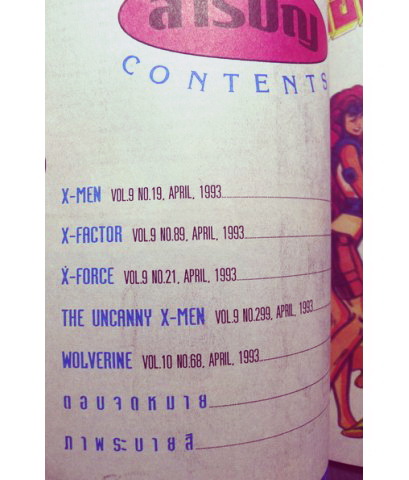 สารบัญ
CONTENTS
X-MEN VOL.9 NO.19, APRIL, 1993
X-FACTOR VOL.9 NO.89, APRIL, 1993
X-FORCE VOL.9 NO.21, APRIL, 1993
THE UNCANNY X-MEN VOL.9 NO.299, APRIL, 1993
WOLVERINE VOL.10 NO.68, APRIL, 1993
ตอบจดหมาย
ภาพระบายสี